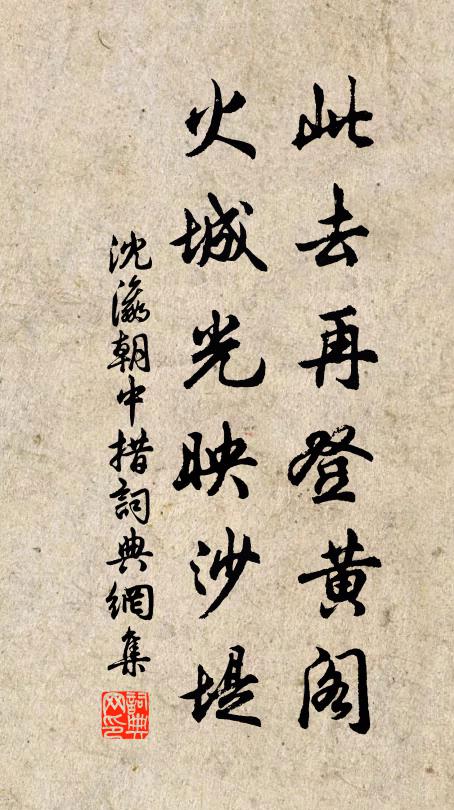 此去再登黃阁
火城光映沙堤
沈瀛朝中措詞典網集
詞典网印